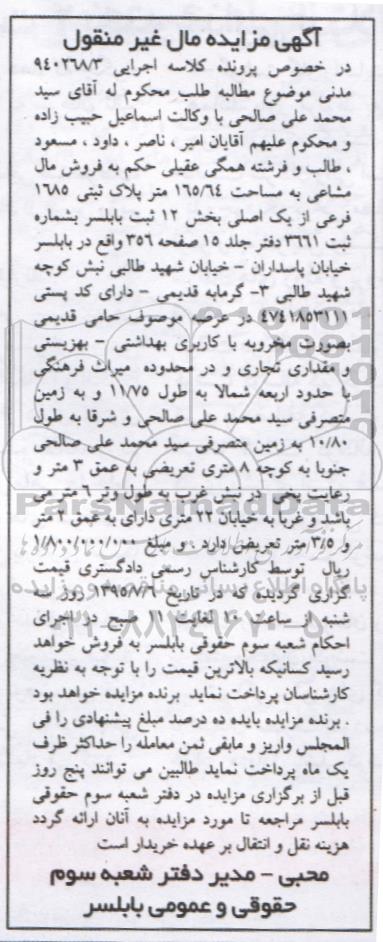 آگهی مزایده مال غیر منقول
در خصوص پرونده کلاسه اجرایی ۹۴۰۲۶۸/۳
مدنی موضوع مطالبه طلب محکوم له آقای سید
محمد علی صالحی با وکالت اسماعیل حبیب زاده
و محکوم علیهم آقایان امیر ، ناصر ، داود ، مسعود
، طالب و فرشته همگی عقیلی حکم به فروش مال
مشاعی به مساحت ۱۶۵/۶۴ متر پلاک ثبتی ۱۶۸۵
فرعی از یک اصلی بخش ۱۲ ثبت بابلسر بشماره
ثبت ۳۶۶۱ دفتر جلد ۱۵ صفحه ۳۵۶ واقع در بابلسر
خیابان پاسداران – خیابان شهید طالبی نبش کوچه
شهید طالبی ۳- گرمابه قدیمی – دارای کد پستی
۴۷۴۱۸۵۳۱۱۱ در عرصه موصوف حامی قدیمی
بصورت مخروبه با کاربری بهداشتی – بهزیستی
و مقداری تجاری و در محدوده میراث فرهنگی
با حدود اربعه شمالا به طول ۱۱/۷۵ و به زمین
متصرفی سید محمد علی صالحی و شرقا به طول
۱۰/۸۰ به زمین متصرفی سید محمد علی صالحی
جنوبا به کوچه ۸ متری تعریضی به عمق ۳ متر و
رعایت پخی در نبش غرب به طول وتر ۶ متر می
باشد و غربا به خیابان ۲۲ متری دارای به عمق ۲ متر
و ۳/۵ متر تعریض دارد و مبلغ ۱/۸۰۰/۰۰۰/۰۰۰
ریال توسط کارشناس رسمی دادگستری قیمت
گزاری گردیده که در تاریخ ۱۳۹۵/۷/۶ روز سه
شنبه از ساعت ۱۰ لغایت ۱۱ صبح در اجرای
احکام شعبه سوم حقوقی بابلسر به فروش خواهد
رسید کسانیکه بالاترین قیمت را با توجه به نظریه
کارشناسان پرداخت نماید برنده مزایده خواهد بود
. برنده مزایده بایده ده درصد مبلغ پیشنهادی را فی
المجلس واریز و مابقی ثمن معامله را حداکثر ظرف
یک ماه پرداخت نماید طالبین می توانند پنج روز
قبل از برگزاری مزایده در دفتر شعبه سوم حقوقی
بابلسر مراجعه تا مورد مزایده به آنان ارائه گردد
هزینه نقل و انتقال بر عهده خریدار است
محبی – مدیر دفتر شعبه سوم
حقوقی و عمومی بابلسر
ParsNamadData
۰۲۱-۸۸۳۴۹۶۷۰-۵